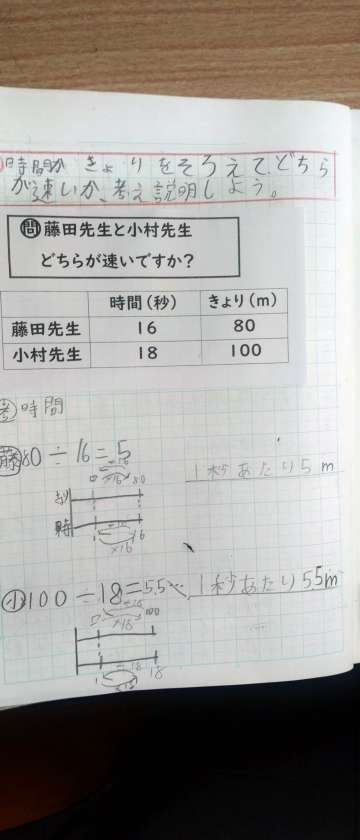 時間かきょりをそろえて、どちら
が速いか、考え説明しよう。
問 藤田先生と小村先生
どちらが速いですか？
時間（秒） きょり（m）
藤田先生 16 80
小村先生 18 100
考 時間
藤 80÷16=5
1秒あたり5m
÷16
0 ×16 80
時 1 16
×16
小 100÷18=5.5… 1秒あたり5.5m
÷18
×18 100
÷18
1 18
×18